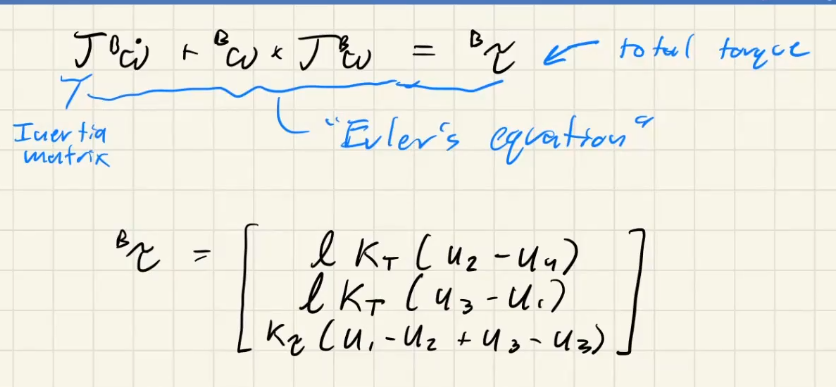 J ᴮω̇ + ᴮω × J ᴮω = ᴮτ ← total torque
Inertia
matrix
"Euler's equation"
ᴮτ = [ l K_T (u₂ - u₄)
l K_T (u₃ - u₁)
K_τ (u₁ - u₂ + u₃ - u₃) ]